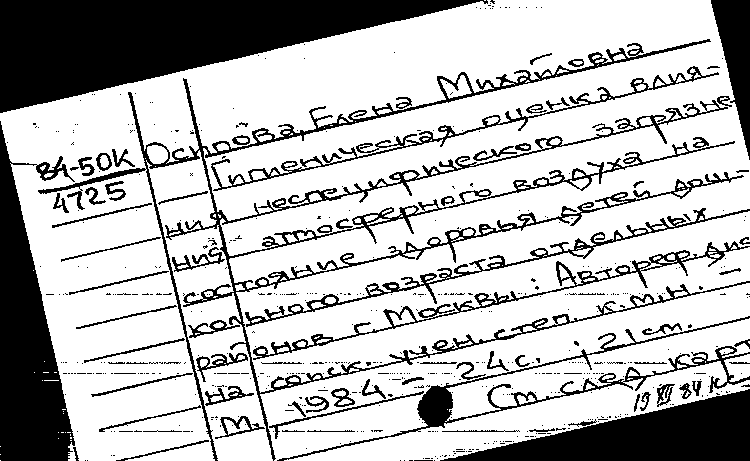 84-50К
4725
Осипова, Елена Михайловна
Гигиеническая оценка влия-
ния неспецифического загрязне-
ния атмосферного воздуха на
состояние здоровья детей дош-
кольного возраста отдельных
районов г. Москвы: Автореф. дис
на соиск. учен. степ. к.м.н. –
М., 1984. – 24 с. ; 21 см.
См. след. карт
19 XII 84